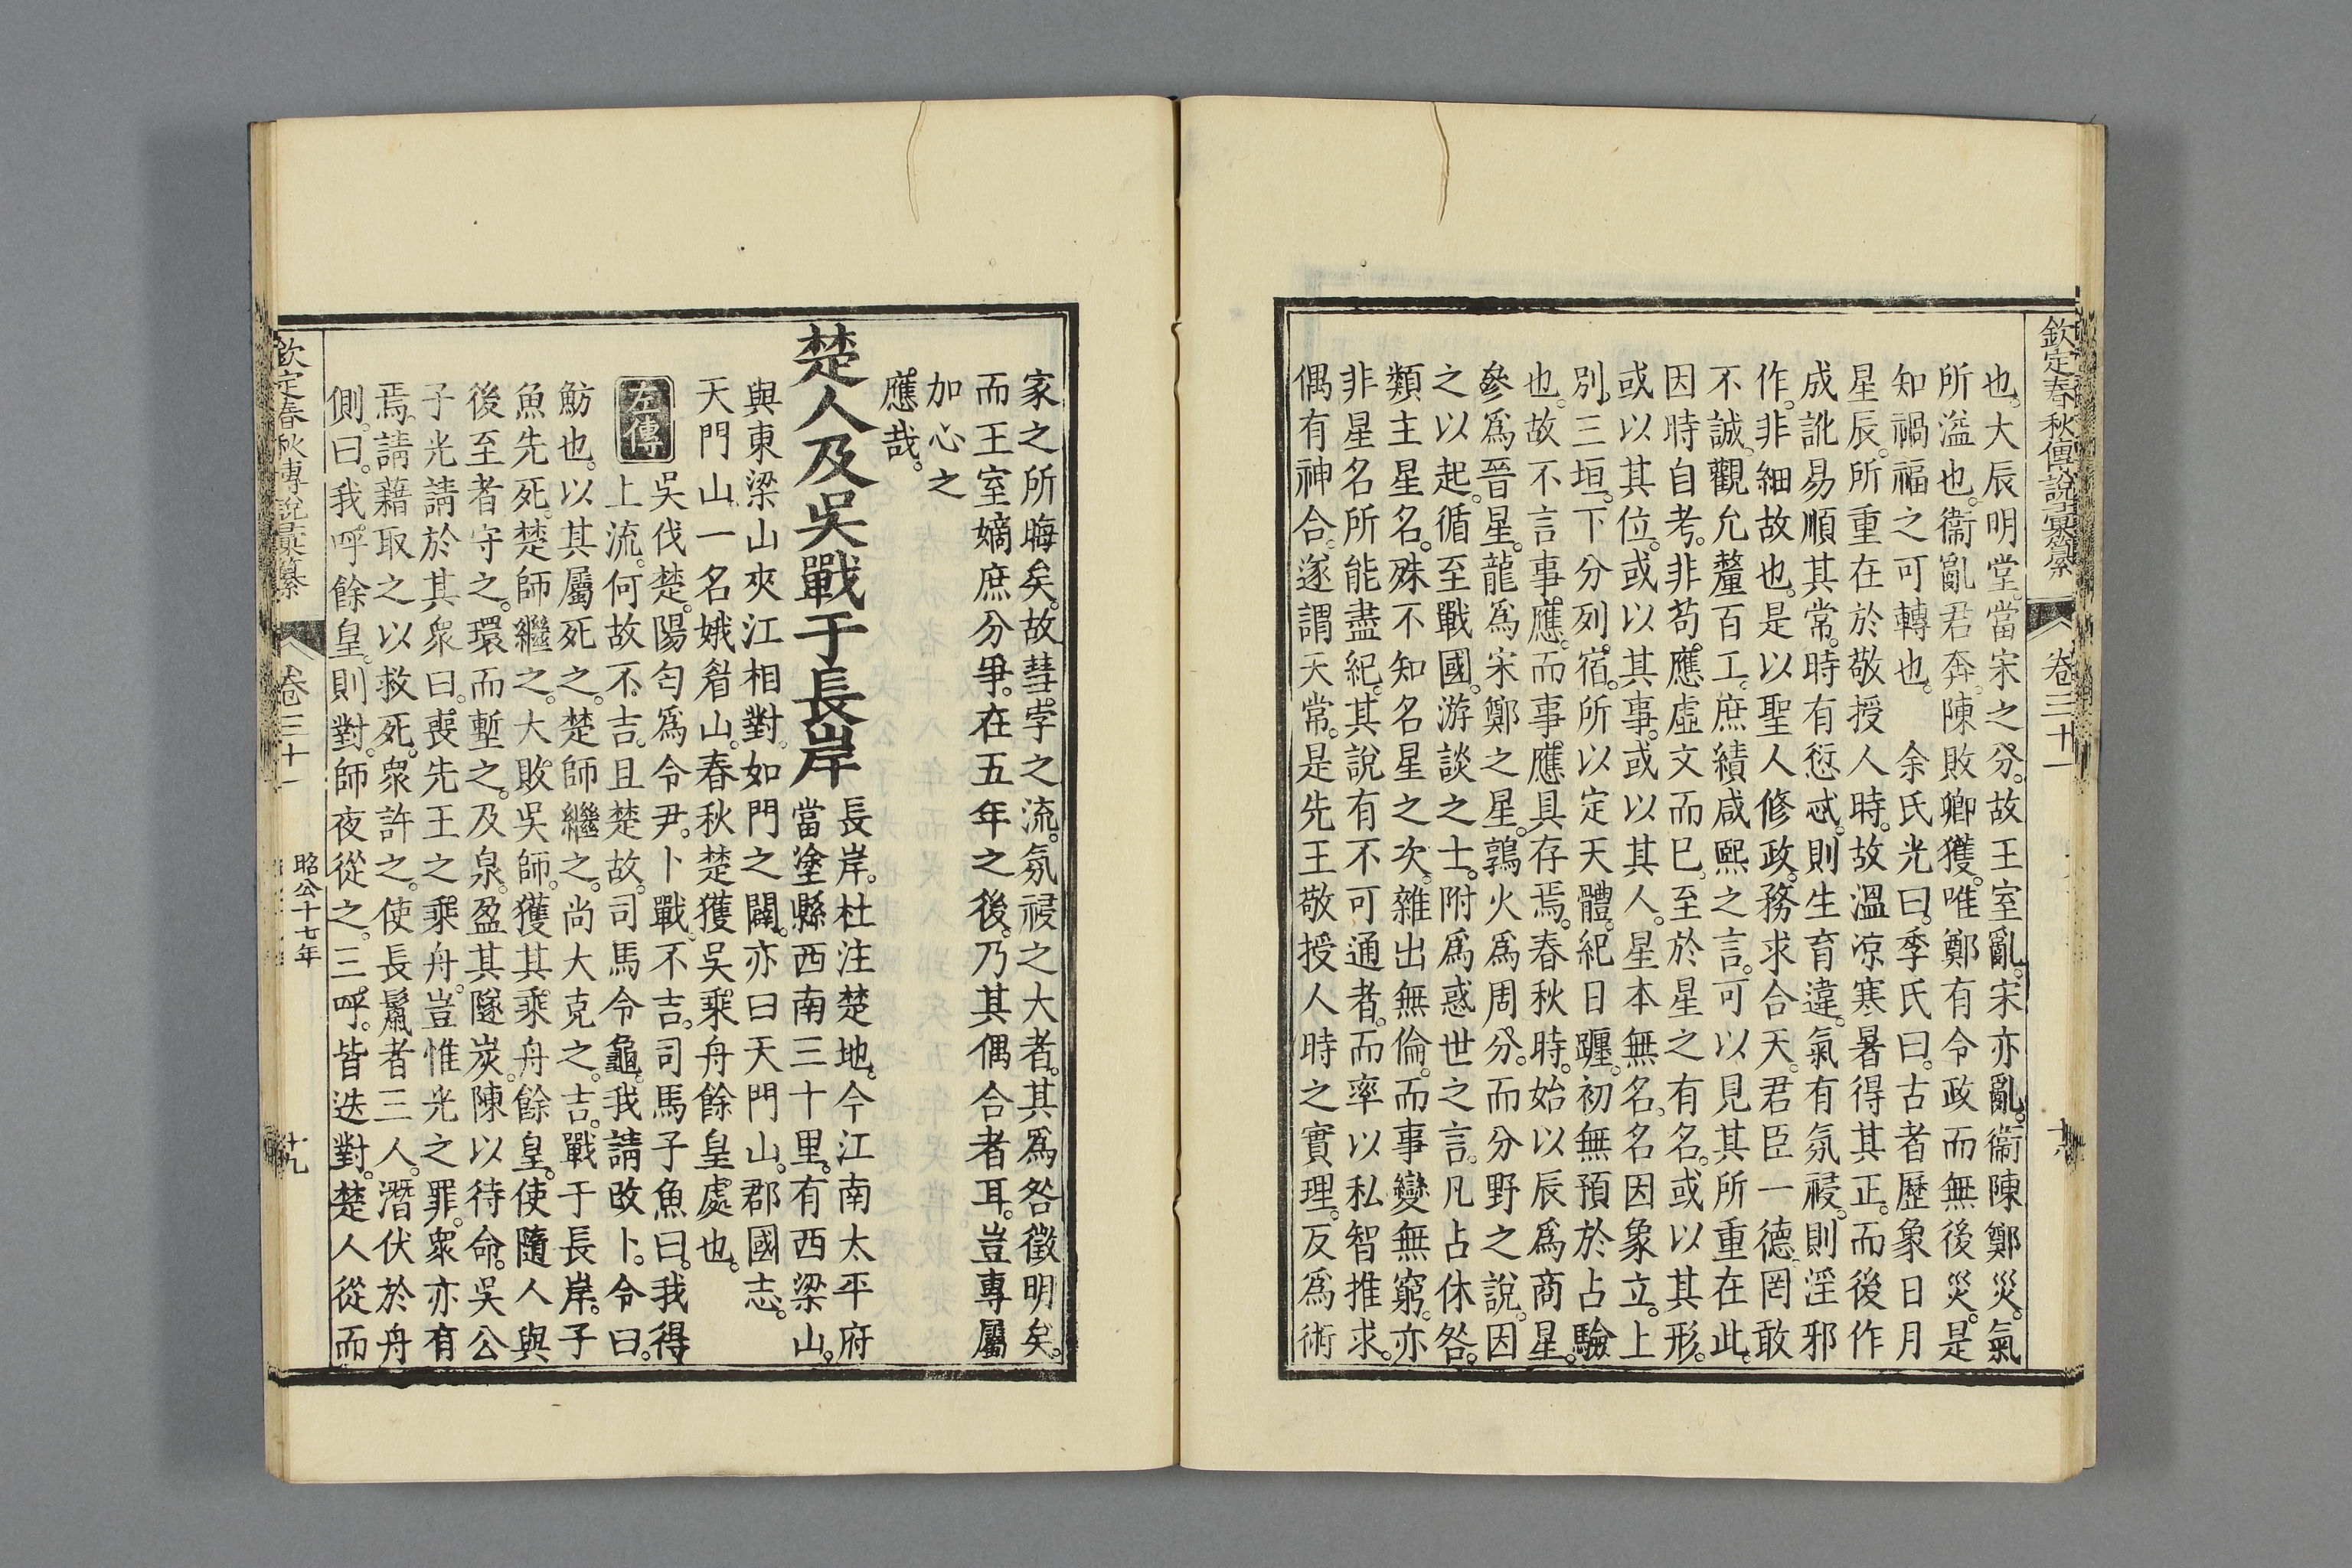 欽定春秋傳說彙纂
卷三十一
也。大辰明堂。當宋之分。故王室亂。宋亦亂。衞陳鄭災。氣
所溢也。衞亂君奔。陳敗卿獲。唯鄭有令政而無後災。是
知禍福之可轉也。　余氏光曰。季氏曰。古者歷象日月
星辰。所重在於敬授人時。故溫凉寒暑得其正。而後作
成訛易順其常。時有愆忒。則生育違。氣有氛祲。則淫邪
作。非細故也。是以聖人修政。務求合天。君臣一德。罔敢
不誠。觀允釐百工。庶績咸熙之言。可以見其所重在此。
因時自考。非苟應虛文而已。至於星之有名。或以其形。
或以其位。或以其事。或以其人。星本無名。名因象立。上
別三垣。下分列宿。所以定天體。紀日躔。初無預於占驗
也。故不言事應。而事應具存焉。春秋時。始以辰爲商星。
參爲晉星。龍爲宋鄭之星。鶉火爲周分。而分野之說。因
之以起。循至戰國。游談之士。附爲惑世之言。凡占休咎。
類主星名。殊不知名星之次。雜出無倫。而事變無窮。亦
非星名所能盡紀。其說有不可通者。而率以私智推求。
偶有神合。遂謂天常。是先王敬授人時之實理。反爲術
家之所晦矣。故彗孛之流。氛祲之大者。其爲咎徵明矣。
而王室嫡庶分爭。在五年之後。乃其偶合者耳。豈專屬
加心之
應哉。
楚人及吳戰于長岸
長岸。杜注楚地。今江南太平府
當塗縣西南三十里。有西梁山。
與東梁山夾江相對。如門之闕。亦曰天門山。郡國志。
天門山。一名娥眉山。春秋楚獲吳乘舟餘皇處也。
左傳
吳伐楚。陽匄爲令尹。卜戰。不吉。司馬子魚曰。我得
上流。何故不吉。且楚故。司馬令龜。我請改卜。令曰。
魴也。以其屬死之。楚師繼之。尚大克之。吉。戰于長岸。子
魚先死。楚師繼之。大敗吳師。獲其乘舟餘皇。使隨人與
後至者守之。環而塹之。及泉。盈其隧炭。陳以待命。吳公
子光請於其衆曰。喪先王之乘舟。豈惟光之罪。衆亦有
焉。請藉取之以救死。衆許之。使長鬣者三人。潛伏於舟
側。曰。我呼餘皇。則對。師夜從之。三呼。皆迭對。楚人從而
欽定春秋傳說彙纂
卷三十一
昭公十七年
十九